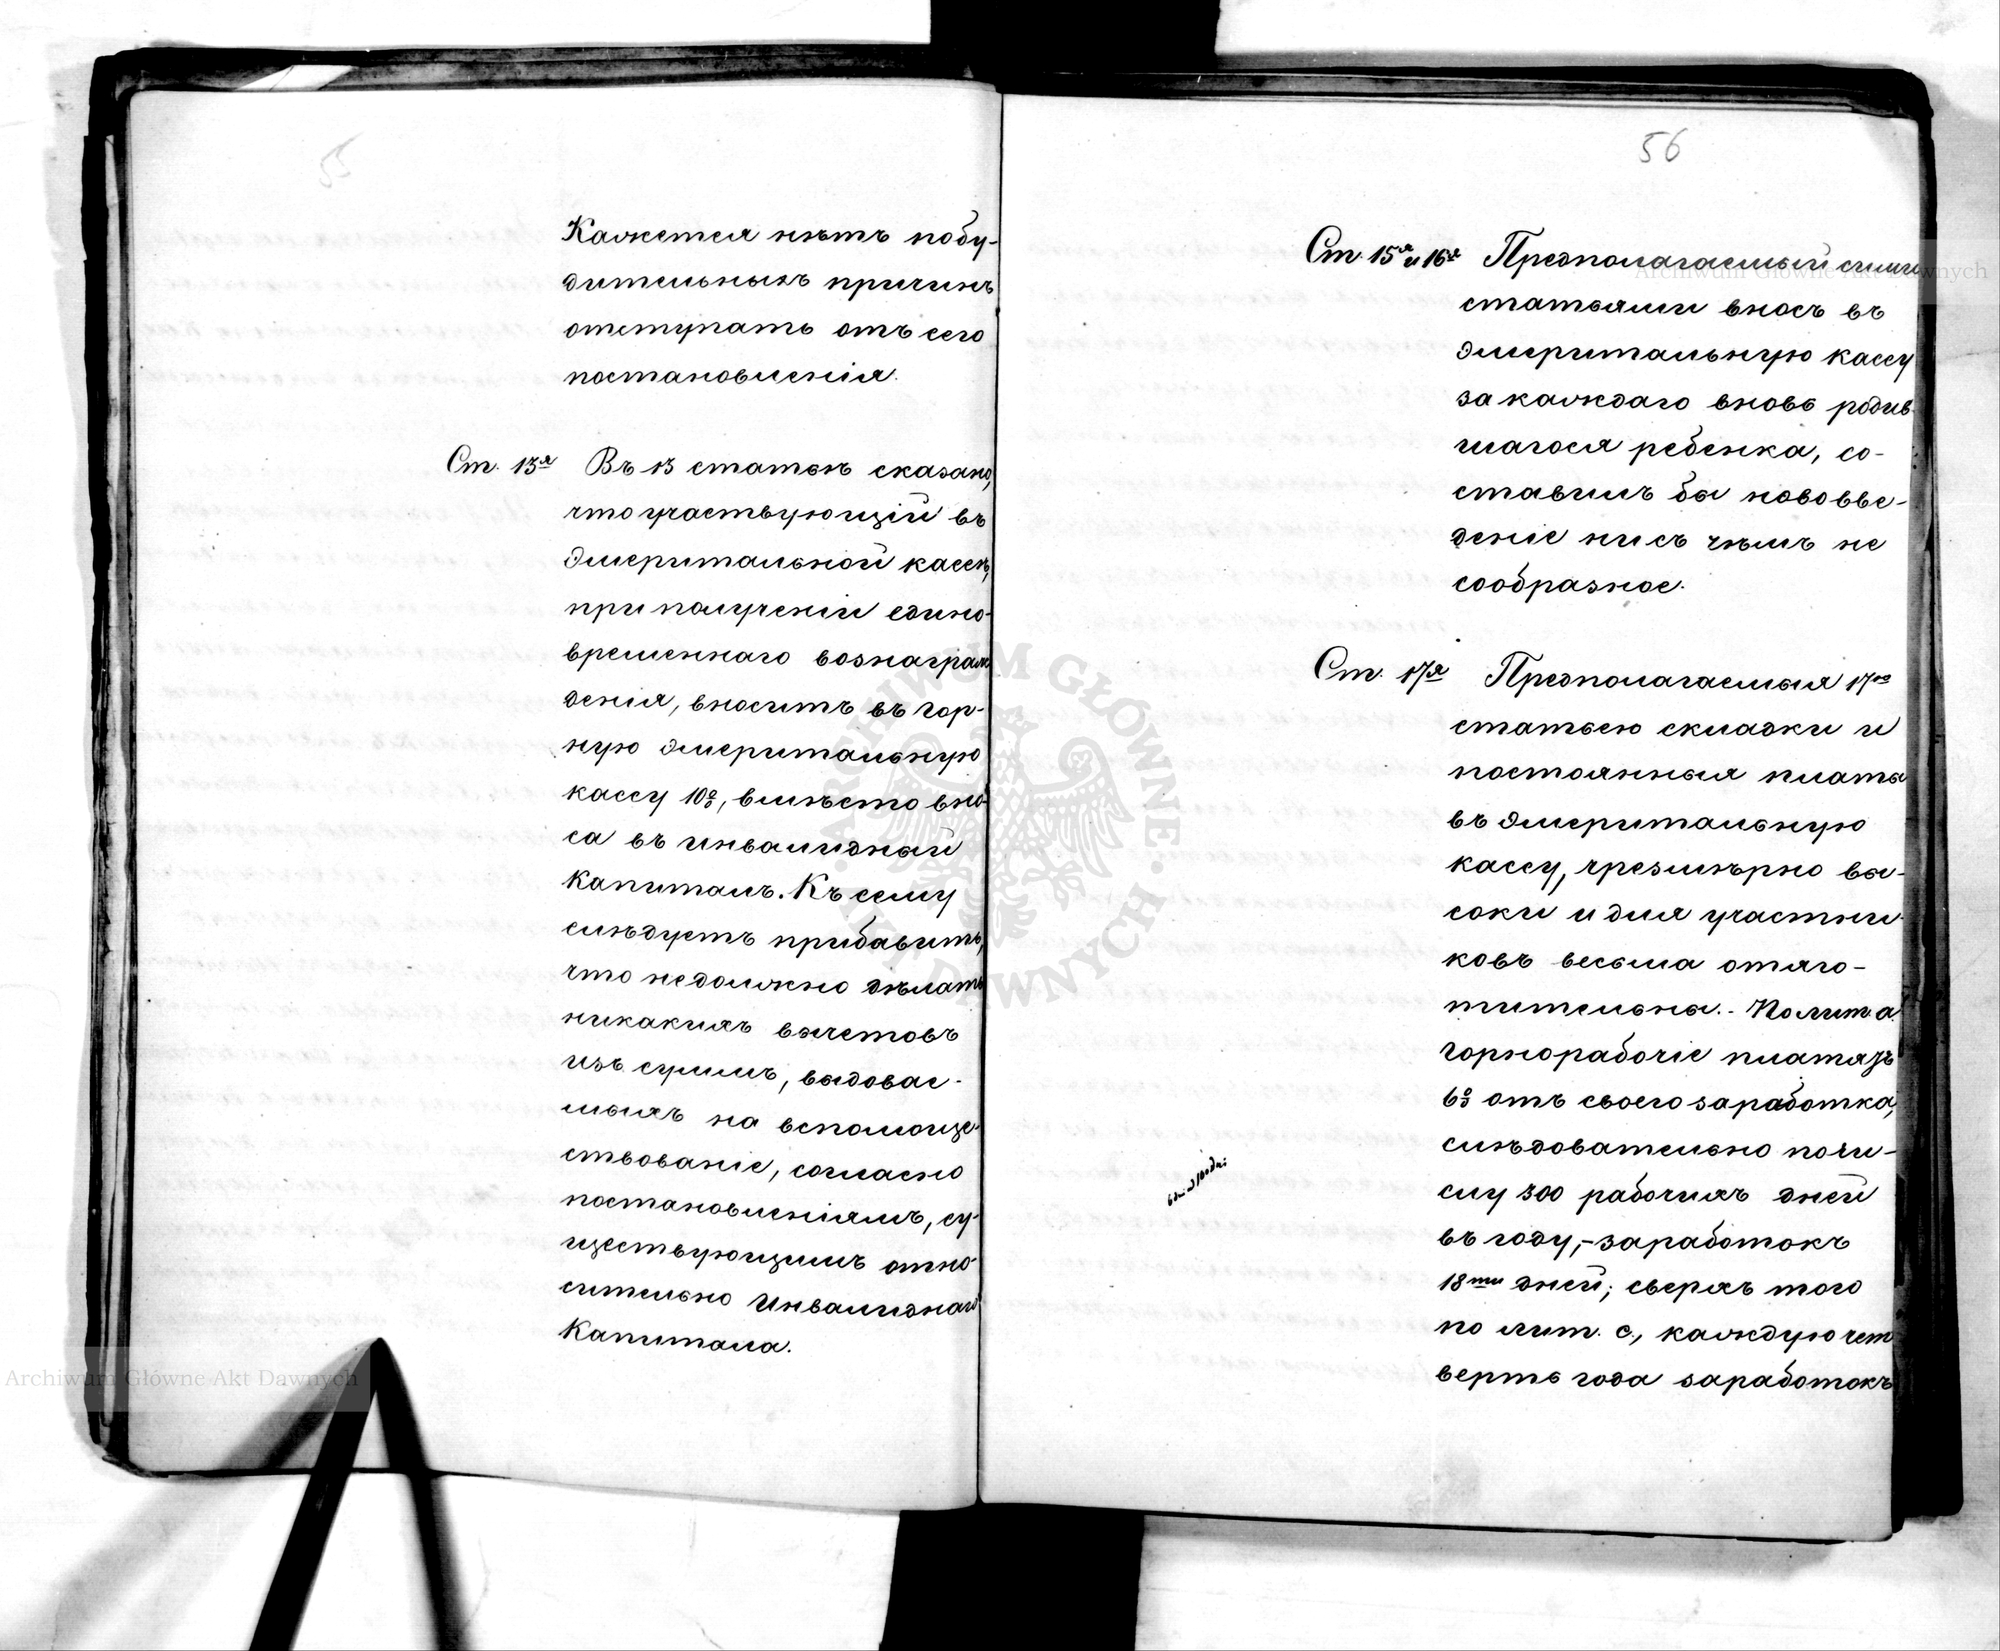 55
Кажется нѣтъ побу-
дительныхъ причинъ
отступать отъ сего
постановленія.
Ст. 13я Въ 13 статьѣ сказано,
что участвующій въ
Эмеритальной кассѣ,
при полученіи едино-
временнаго вознаграж
денія, вноситъ въ гор-
ную эмеритальную
кассу 10%, вмѣсто вно-
са въ инвалидный
Капиталъ. Къ сему
слѣдуетъ прибавить,
что не должно дѣлать
никакихъ вычетовъ
изъ суммъ, выдовае-
мыхъ на вспомоще-
ствованіе, согласно
постановленіямъ, су-
ществующимъ отно-
сительно Инвалиднаго
Капитала.
56
Ст. 15я и 16я Предполагаемый сими
статьями вносъ въ
Эмеритальную кассу
за каждаго вновь родив-
шагося ребенка, со-
ставилъ бы нововве-
деніе ни съ чѣмъ не
сообразное.
Ст. 17я Предполагаемыя 17ою
статьею складки и
постоянныя платы
въ Эмеритальную
кассу, чрезмѣрно вы-
соки и для участни-
ковъ весьма отяго-
тительны.- По лит. а.
горнорабочіе платятъ
6% отъ своего заработка,
слѣдовательно по чи-
слу 300 рабочихъ дней
въ году,-заработокъ
18ти дней; сверхъ того
по лит. с., каждую чет
верть года заработокъ
Archiwum Główne Akt Dawnych
Archiwum Główne Akt Dawnych
ARCHIWUM GŁÓWNE AKT DAWNYCH